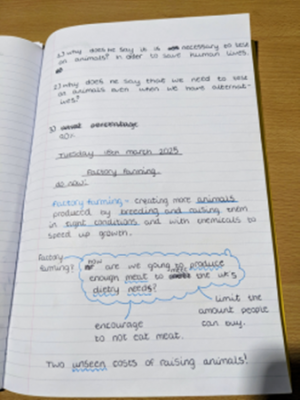 1) why does he say it is necessary to test
on animals? In order to save human lives.
2) why does he say that we need to test
on animals even when we have alternat-
ives?
3) percentage
Tuesday 18th march 2025
Factory farming
do now:
Factory farming - creating more animals
produced by breeding and raising them
in tight conditions and with chemicals to
speed up growth.
Factory
farming?
How
are we going to produce
enough meat to meet the uk's
dietry needs?
encourage
to not eat meat.
Limit the
amount people
can buy.
Two unseen costs of raising animals!